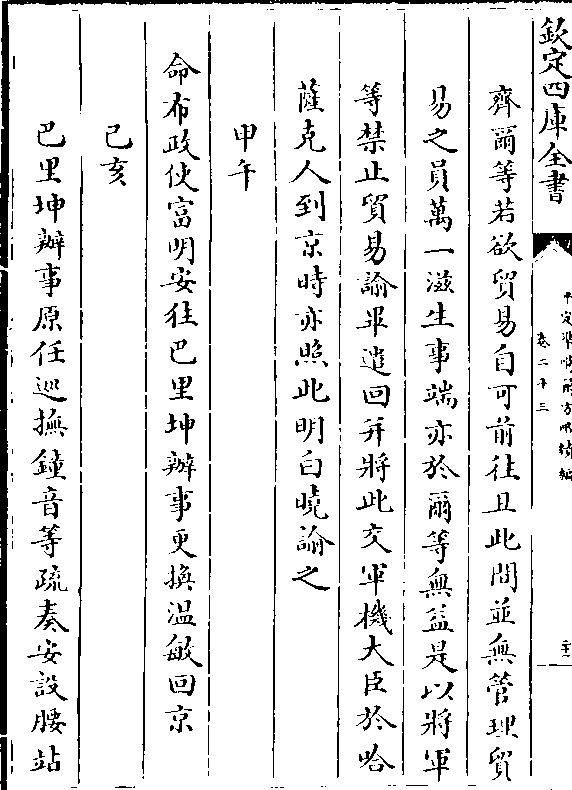 欽定四庫全書
平定準噶爾方略續編
卷二十三
齊爾等若欲貿易自可前往且此間並無管理貿
易之員萬一滋生事端亦於爾等無益是以將軍
等禁止貿易諭畢遣回并將此交軍機大臣於哈
薩克人到京時亦照此明白曉諭之
甲午
命布政使富明安往巴里坤辦事更換溫敏回京
己亥
巴里坤辦事原任巡撫鐘音等疏奏安設腰站